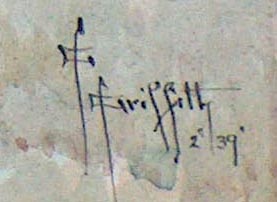 F. Griffith
2' 39'